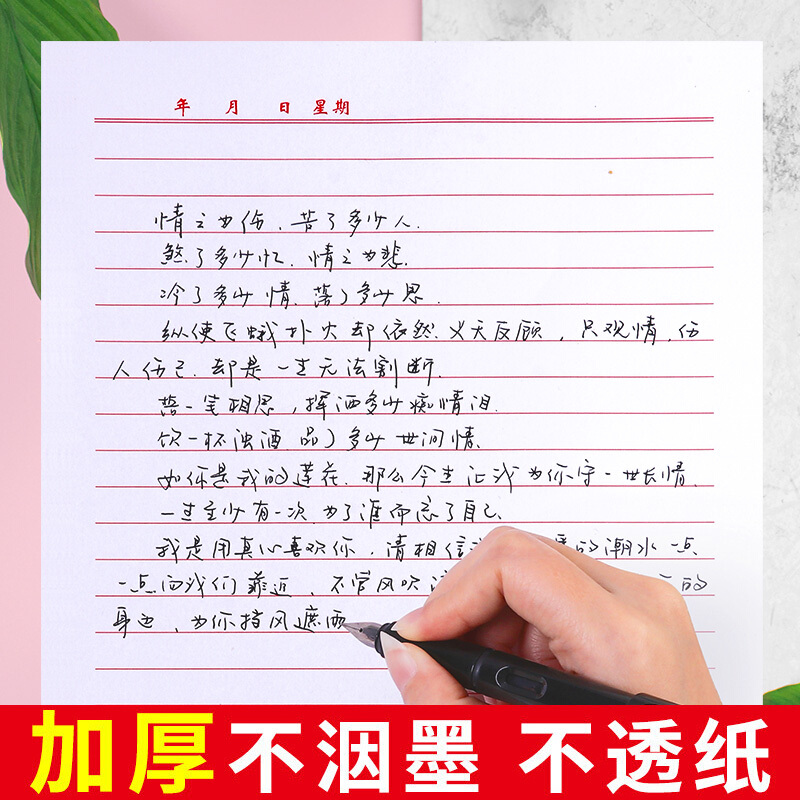 年 月 日 星期
情之为伤、苦了多少人.
煞了多少忆. 情之为悲.
冷了多少情、落了多少思.
纵使飞蛾扑火却依然. 义无反顾，只观情，伤
人伤己. 却是一生无法割断.
落一笔相思，挥洒多少痴情泪.
饮一杯浊酒. 品了多少世间情.
如你是我的莲花. 那么今生让我为你守一世长情.
一生至少有一次. 为了谁而忘了自己.
我是用真心喜欢你，请相信 的潮水一点、
一点向我们靠近，不管风吹 的
身边，为你挡风遮雨
加厚不洇墨 不透纸